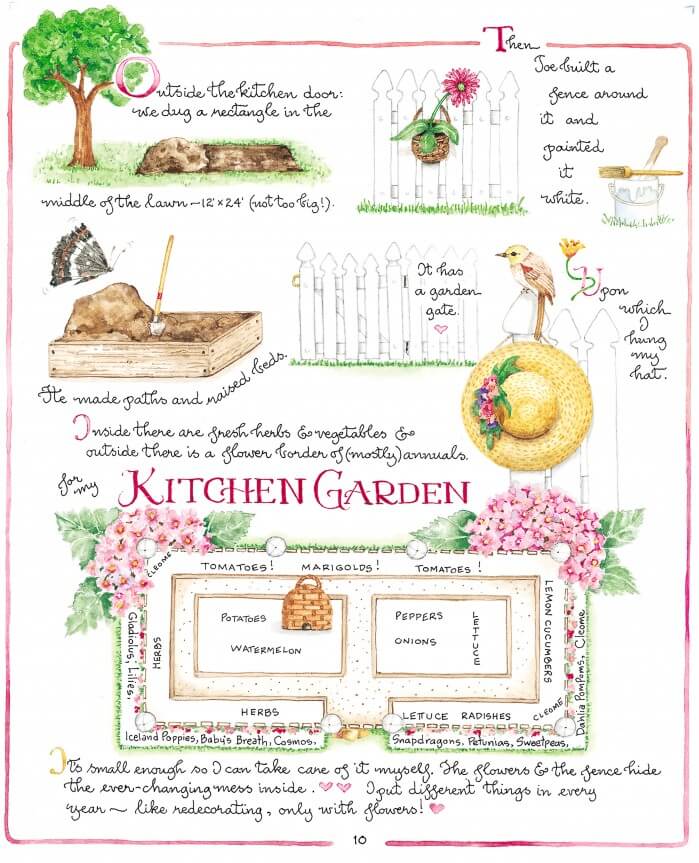 Outside the kitchen door:
we dug a rectangle in the
middle of the lawn ~ 12' x 24' (not too big!).
Then
Joe built a
fence around
it and
painted
it
white.
He made paths and raised beds.
It has
a garden
gate.
Upon
which
I
hung
my
hat.
Inside there are fresh herbs & vegetables &
outside there is a flower border of (mostly) annuals.
for my
KITCHEN GARDEN
CLEOME
TOMATOES! MARIGOLDS! TOMATOES!
Gladiolus, Lilies,
HERBS
POTATOES
WATERMELON
PEPPERS
ONIONS
LETTUCE
LEMON CUCUMBERS
Dahlia Pompoms, Cleome
HERBS
LETTUCE RADISHES
CLEOME
Iceland Poppies, Baby's Breath, Cosmos,
Snapdragons, Petunias, Sweetpeas,
It's small enough so I can take care of it myself. The flowers & the fence hide
the ever-changing mess inside. I put different things in every
year ~ like redecorating, only with flowers!
10